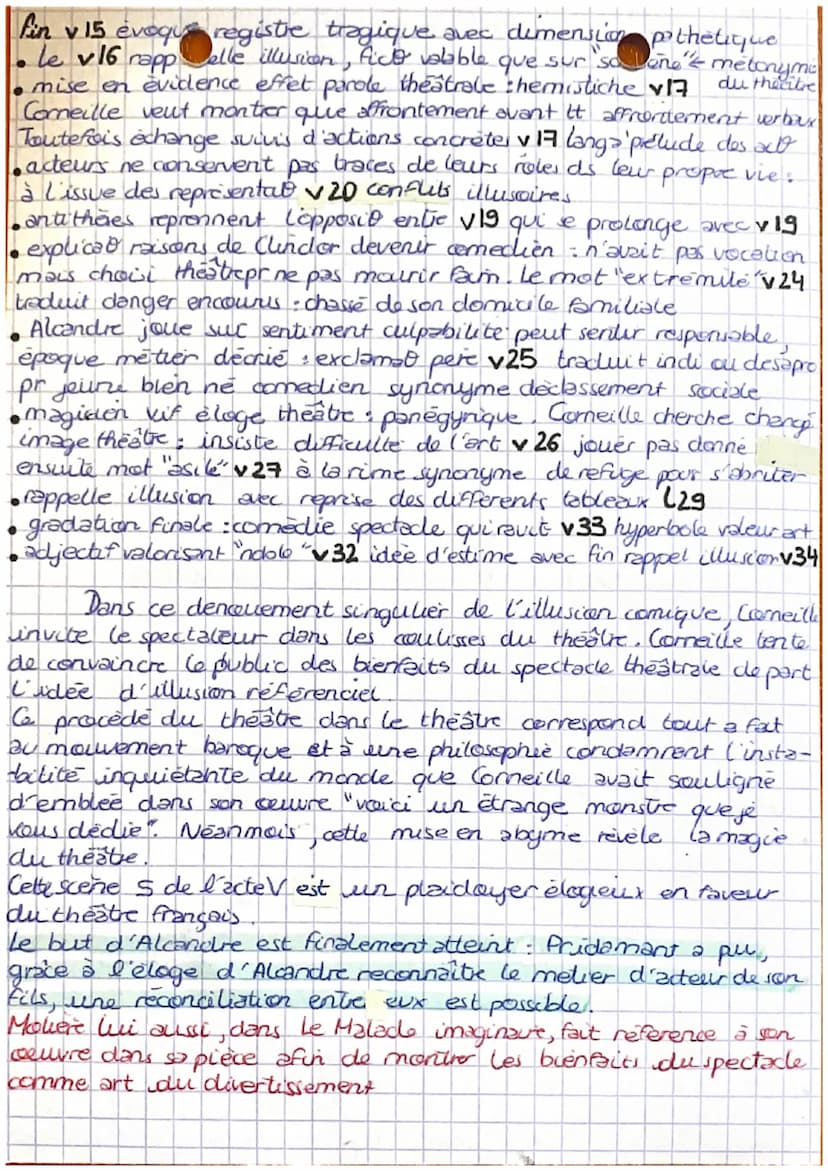 fin v15 évoque registre tragique avec dimension pathétique
• Le v16 rappelle illusion, fict° valable que sur "scène" métonymie
• mise en évidence effet parole théâtrale : hemistiche v17 du théâtre
Corneille veut montrer que affrontement avant tt affrontement verbaux
Toutefois échange suivis d'actions concrètes v17 lang = prélude des act°
• acteurs ne conservent pas traces de leurs rôles ds leur propre vie :
à l'issue des représentat° v20 conflits illusoires
• antithèses reprennent l'opposit° entre v19 qui se prolonge avec v19
• explicat° raisons de Clindor devenir comédien : n'avait pas vocation
mais choisi théâtre pr ne pas mourir faim. Le mot "extrémité" v24
traduit danger encourus : chassé de son domicile familiale
• Alcandre joue sur sentiment culpabilité peut sentir responsable,
époque métier décrié : exclamat° père v25 traduit indi ou désapro
pr jeune bien né comédien synonyme déclassement sociale
• magicien vif éloge théâtre : panégyrique. Corneille cherche chang
image théâtre ; insiste difficulté de l'art v 26 jouer pas donné
ensuite mot "asile" v27 à la rime synonyme de refuge pour s'abriter
• rappelle illusion avec reprise des différents tableaux l29
• gradation finale : comédie spectacle qui ravit v33 hyperbole valeur art
• adjectif valorisant v32 idée d'estime avec fin rappel illusion v34
Dans ce dénouement singulier de l'illusion comique, Corneille
invite le spectateur dans les coulisses du théâtre. Corneille tente
de convaincre le public des bienfaits du spectacle théâtrale de part
l'idée d'illusion référenciel.
Ce procédé du théâtre dans le théâtre correspond tout a fait
au mouvement baroque et à une philosophie condamrent l'insta-
bilité inquiétante du monde que Corneille avait souligné
d'emblée dans son œuvre "voici un étrange monstre que je
vous dédie". Néanmois, cette mise en abyme révèle la magie
du théâtre.
Cette scène 5 de l'acte V est un plaidoyer élogieux en faveur
du théâtre français.
Le but d'Alcandre est finalement atteint : Pridamans a pu,
grâce à l'éloge d'Alcandre reconnaître le métier d'acteur de son
fils, une réconciliation entre eux est possible.
Molière lui aussi, dans Le Malade imaginaire, fait référence à son
œuvre dans sa pièce afin de montrer les bienfaits du spectacle
comme art du divertissement